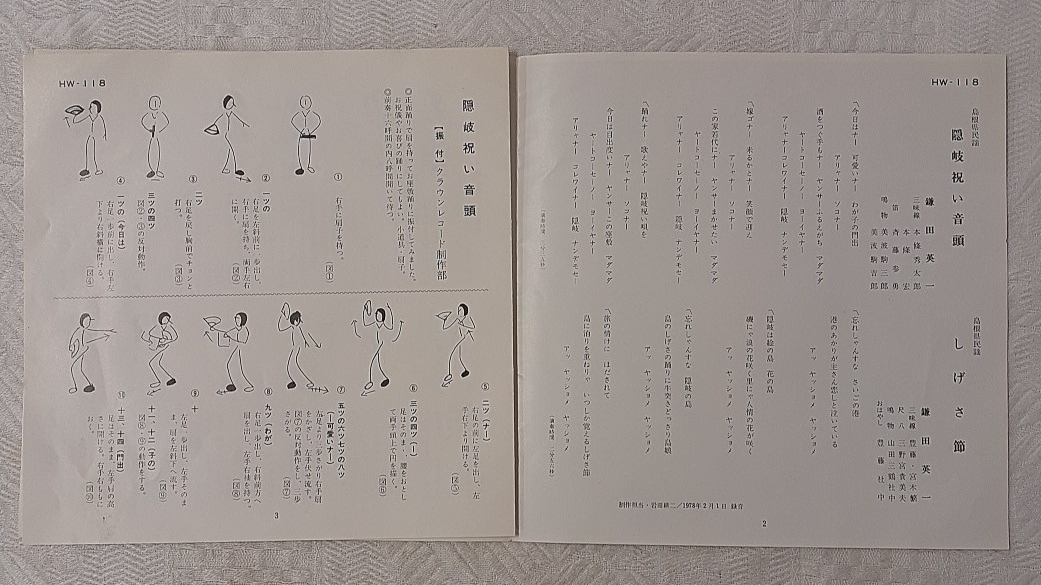 HW-118
島根県民謡
隠岐祝い音頭
鎌田英一
三味線 本條秀太郎
本條 宏
笛 斉藤参勇
鳴物 美波駒三郎
美波駒吉郎
〽今日はナー 可愛いナー わが子の門出
アリャナー ソコナー
酒をつぐ手もナー ヤンサーふるえがち マダマダ
ヤートコーセーノー ヨーイヤナー
アリャナー コレワイナー 隠岐 ナンデモセー
〽嫁ゴナー 来るかとナー 笑顔で迎え
アリャナー ソコナー
この家若代にナー ヤンサーまかせたい マダマダ
ヤートコーセーノー ヨーイヤナー
アリャナー コレワイナー 隠岐 ナンデモセー
〽踊れナー 歌えやナー 隠岐祝い唄を
アリャナー ソコナー
今日は目出度いナー ヤンサーこの座敷 マダマダ
ヤートコーセーノー ヨーイヤナー
アリャナー コレワイナー 隠岐 ナンデモセー
島根県民謡
しげさ節
鎌田英一
三味線 豊藤・宮本繁
尺八 三野宮貴美夫
鳴物 山田三鶴社中
おはやし 豊藤社中
〽忘れしゃんすな さいごの港
港のあかりが主さん恋しと泣いている
アッ ヤッショメ ヤッショメ
〽隠岐は絵の島 花の島
磯にゃ浪の花咲く里にゃ人情の花が咲く
アッ ヤッショメ ヤッショメ
〽忘れしゃんすな 隠岐の島
島のしげさの踊りに突さどっさり島唄
アッ ヤッショメ ヤッショメ
〽旅の情けに ほだされて
島に泊りを重ねりゃ いつしか覚えるしげさ節
アッ ヤッショメ ヤッショメ
制作担当・岩田耕二/1978年2月1日 録音
2
HW-118
隠岐祝い音頭
【振付】クラウンレコード制作部
◎正面踊りで扇を持ってお座敷踊りに振付してみました。
お祝儀やお喜びの踊りにしてもよい。小道具、扇子。
◎前奏十六呼間の内六呼間聞いて待つ。
①
右手に扇子を持つ。
(図①)
② 一ツの
右足を左斜前に一歩出し、
右手に扇を持ち、両手左右
に開く。
(図②)
③ 二ツ
右足を戻し胸前でチョンと
打つ。
(図③)
三ツの四ツ
図②・③の反対動作。
④ 一ツの(今日は)
右足一歩前に出し、右手左
下より右斜横に開ける。
(図④)
⑤ 二ツ(ナー)
右足の前に左足を出し、左
手右下より開ける。
(図⑤)
⑥ 三ツの四ツ(ー)
足はそのまま、腰をおとし
て両手頭上で円を描く。
(図⑥)
⑦ 五ツの六ツ七ツの八ツ
(可愛いナー)
左足より二歩さがり右手扇
をかざし、左手伏せ流す。
図⑦の反対動作をし、二歩
さがる。
(図⑦)
⑧ 九ツ(わが)
右足一歩出し、右斜前方へ
扇を出し、左手右袖を持つ。
(図⑧)
⑨ 十
左足一歩出し、左手そのま
ま、扇を左斜下へ流す。
(図⑨)
十一、十二(子の)
図⑧・⑨の動作をする。
⑩ 十三、十四(門出)
足はそのまま、左手肩の高
さに開ける。右手右ももに
おく。
(図⑩)
3